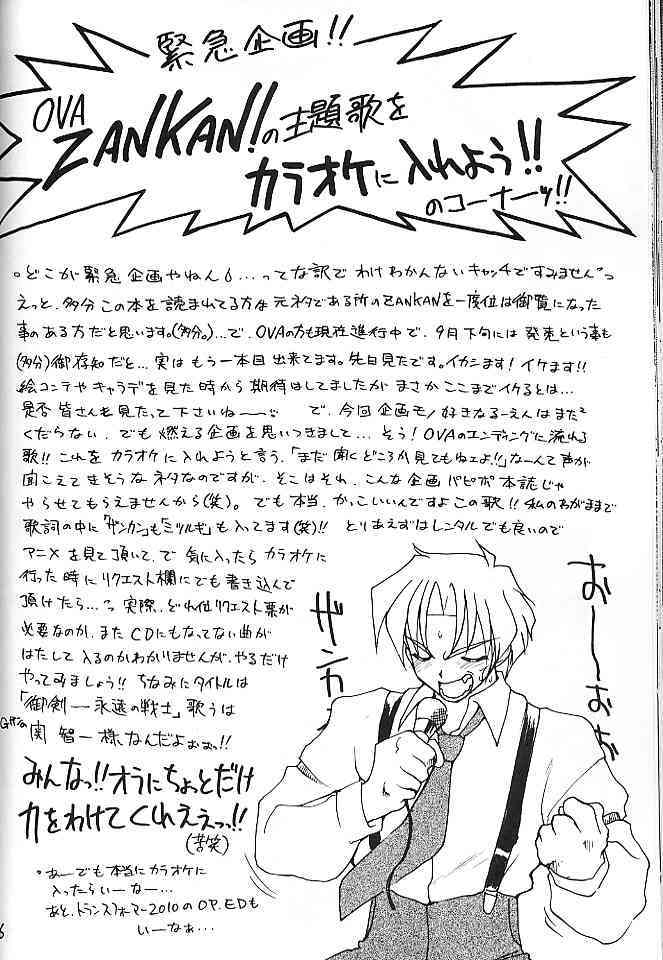 緊急企画!!
OVA
ZANKAN!の主題歌を
カラオケに入れよう!!
のコーナーッ!!
。どこが緊急企画やねん6...ってな訳でわけわかんないキャッチですみません"っ
えっと、多分この本を読まれてる方は元ネタである所のZANKANを一度位は御覧になった
事のある方だと思います。(多分。)...で、OVAの方も現在進行中で、9月下旬には発売という事も
(多分)御存知だと...実はもう一本目出来てます。先日見たです。イカシます!イケます!!
絵コンテやキャラデを見た時から期待はしてましたがまさかここまでイケるとは...
是否皆さんも見たって下さいね〜 で、今回企画モノ好きなるーえんはまた²
くだらない、でも燃える企画を思いつきまして...そう!OVAのエンディングに流れる
歌!!これをカラオケに入れようと言う、「まだ聞くどころか見てもねェよ!!」なーんて声が
聞こえてきそうなネタなのですが、そこはそれ、こんな企画パピポ本誌じゃ
やらせてもらえませんから(笑)。でも本当、かっこいいんですよこの歌!!私のわがままで
歌詞の中に「ザンカン」も「ミツルギ」も入ってます(笑)!!とりあえずはレンタルでも良いので
アニメを見て頂いて、で気に入ったらカラオケに
行った時にリクエスト欄にでも書き込んで
頂けたら...っ実際、どれ位リクエスト票が
必要なのか、またCDにもなってない曲が
はたして入るのかわかりませんが、やるだけ
やってみましょう!!ちなみにタイトルは
「御剣ー永遠の戦士」歌うは
関智一様なんだよぉぉっ!!
みんなっ!!オラにちょっとだけ
力をわけてくれええっっ!!
(苦笑)
。あーでも本当にカラオケに
入ったらいーなー...
あと、トランスフォーマー2010のOP.EDも
いーなぁ...
ザンカ
おーーおおぢ
6